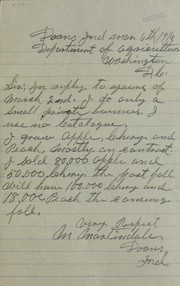 Evans, Ind. Mar 4th 1916
Department of Agriculture
Washington
D.C.
Sir: In reply to yours of
March 2nd. I do only a
small private business. I
use no Catalogue.
I grow Apple, Cherry and
Peach, mostly on contract.
I sold 30,000 Apple and
50,000 Cherry the past fall
Will have 100,000 Cherry and
18,000 Peach the coming
fall.
Very Respct
M. Martindale
Ind.